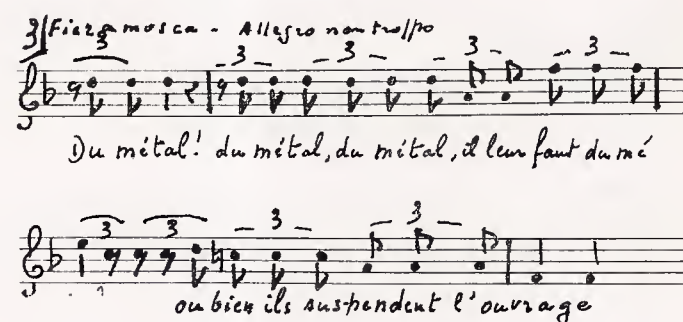 3/ Fieramosca - Allegro non troppo
3 3 3 3 3
Du métal! du métal, du métal, il leur faut du mé
3 3 3 3
ou bien ils suspendent l'ouvrage